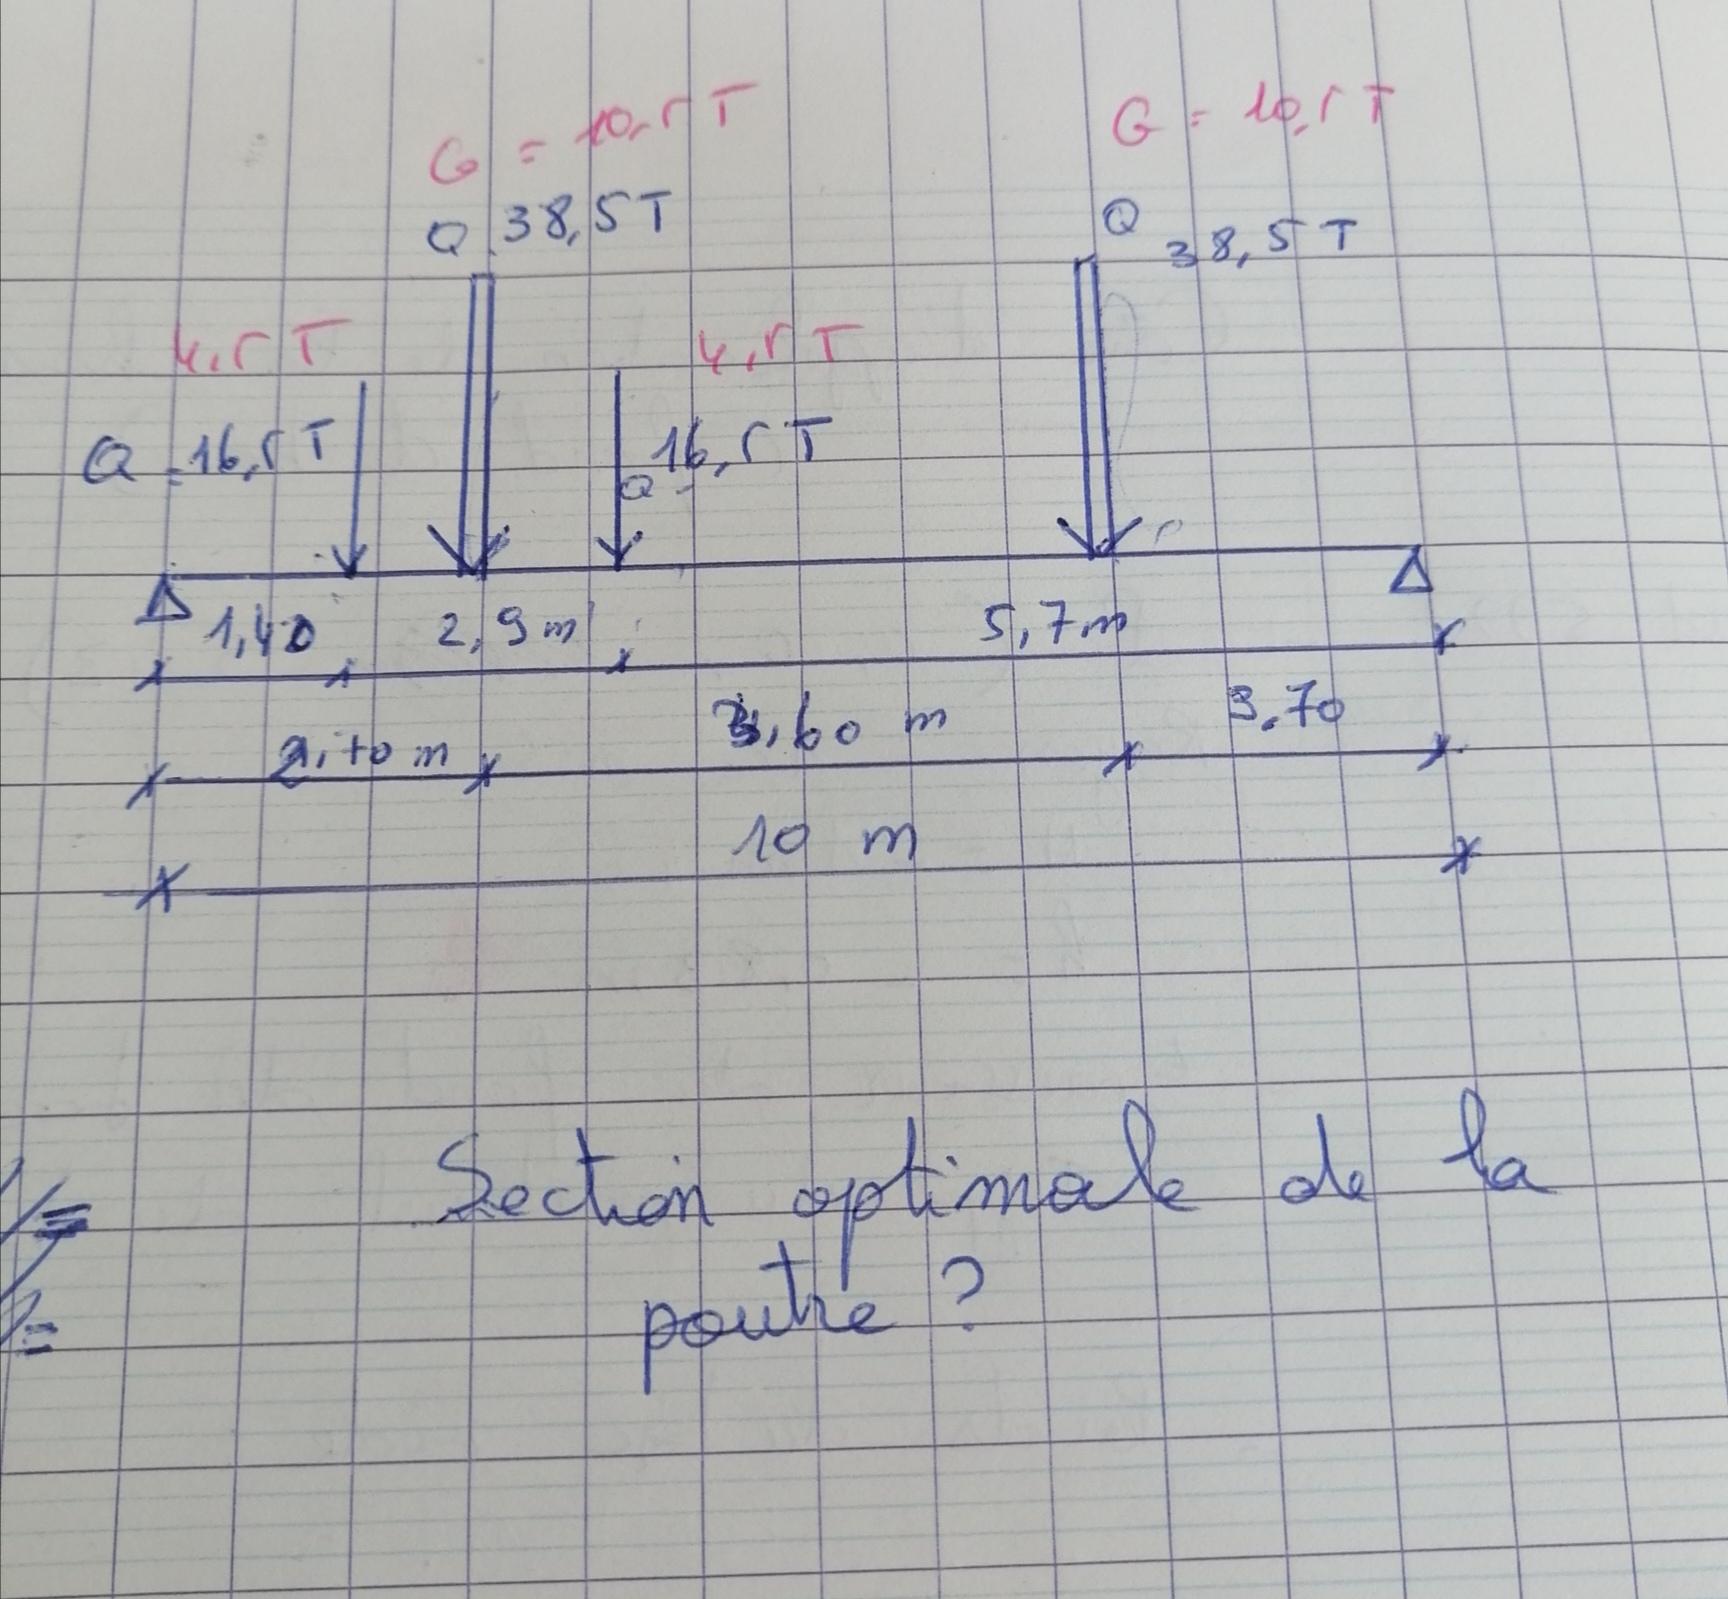 G = 10,5 T
G = 10,5 T
Q 38,5 T
Q 38,5 T
4,5 T
4,5 T
Q = 16,5 T
Q = 16,5 T
1,40
2,9 m
5,7 m
3,60 m
3.70
10 m
Section optimale de la
poutre ?